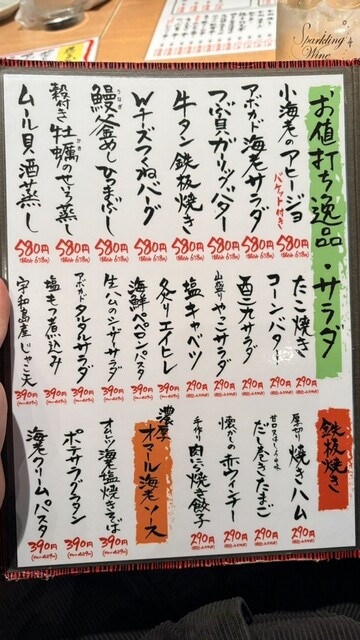 Sparkling
Wine
お値打ち逸品・サラダ
小海老のアヒージョ
バケット付き
580円
アボカド海老サラダ
580円
つぶ貝ガーリックバター
580円
牛タン鉄板焼き
580円
Wチーズつくねバーグ
580円
鰻釜めしひつまぶし
うなぎ
580円
殻付き牡蠣のせいろ蒸し
かき
580円
ムール貝の酒蒸し
580円
たこ焼き
290円
コーンバター
290円
山盛りやこサラダ
290円
塩キャベツ
290円
炙りエイヒレ
390円
海鮮ペペロンパスタ
390円
生ハムのシーザーサラダ
390円
アボカドタルタルサラダ
390円
塩もつ煮込み
390円
宇和島産じゃこ天
390円
鉄板焼き
厚切り焼きハム
290円
だし巻きたまご
290円
懐かしの赤ウインナー
290円
手作り肉汁焼き餃子
290円
濃厚
オマール海老ソース
オマール海老塩焼きそば
390円
ポテサラグラタン
390円
海老クリームパスタ
390円